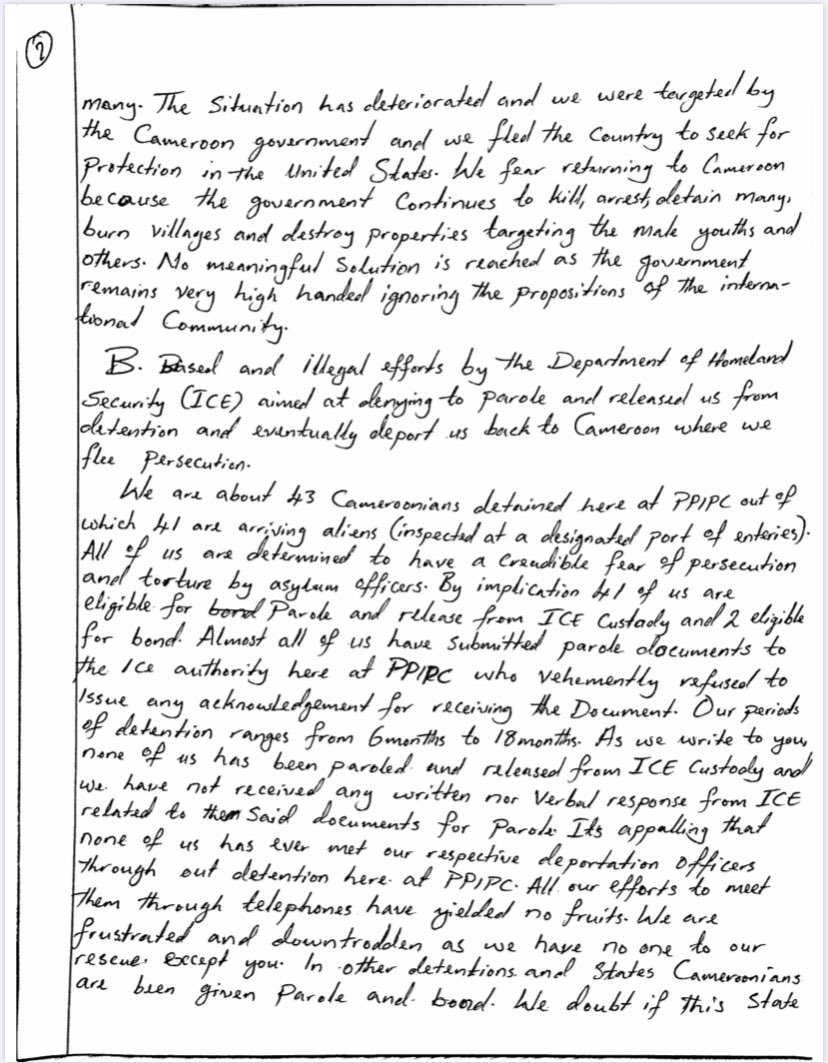 2
many. The Situation has deteriorated and we were targeted by
the Cameroon government and we fled the Country to seek for
Protection in the United States. We fear returning to Cameroon
because the government Continues to kill, arrest, detain many,
burn villages and destroy properties targeting the male youths and
others. No meaningful Solution is reached as the government
remains very high handed ignoring the propositions of the interna-
tional Community.
B. Based and illegal efforts by the Department of Homeland
Security (ICE) aimed at denying to parole and released us from
detention and eventually deport us back to Cameroon where we
flee Persecution.
We are about 43 Cameroonians detained here at PPIPC out of
which 41 are arriving aliens (inspected at a designated port of enteries).
All of us are determined to have a creudible fear of persecution
and torture by asylum officers. By implication 41 of us are
eligible for bond Parole and release from ICE Custody and 2 eligible
for bond. Almost all of us have Submitted parole documents to
the Ice authority here at PPIPC who vehemently refused to
Issue any acknowledgement for receiving the Document. Our periods
of detention ranges from 6months to 18months. As we write to you,
none of us has been paroled and released from ICE Custody and
we have not received any written nor Verbal response from ICE
related to them Said documents for Parole. Its appalling that
none of us has ever met our respective deportation Officers
through out detention here at PPIPC. All our efforts to meet
them through telephones have yielded no fruits. We are
frustrated and downtrodden as we have no one to our
rescue except you. In other detentions and States Cameroonians
are been given Parole and bond. We doubt if this State